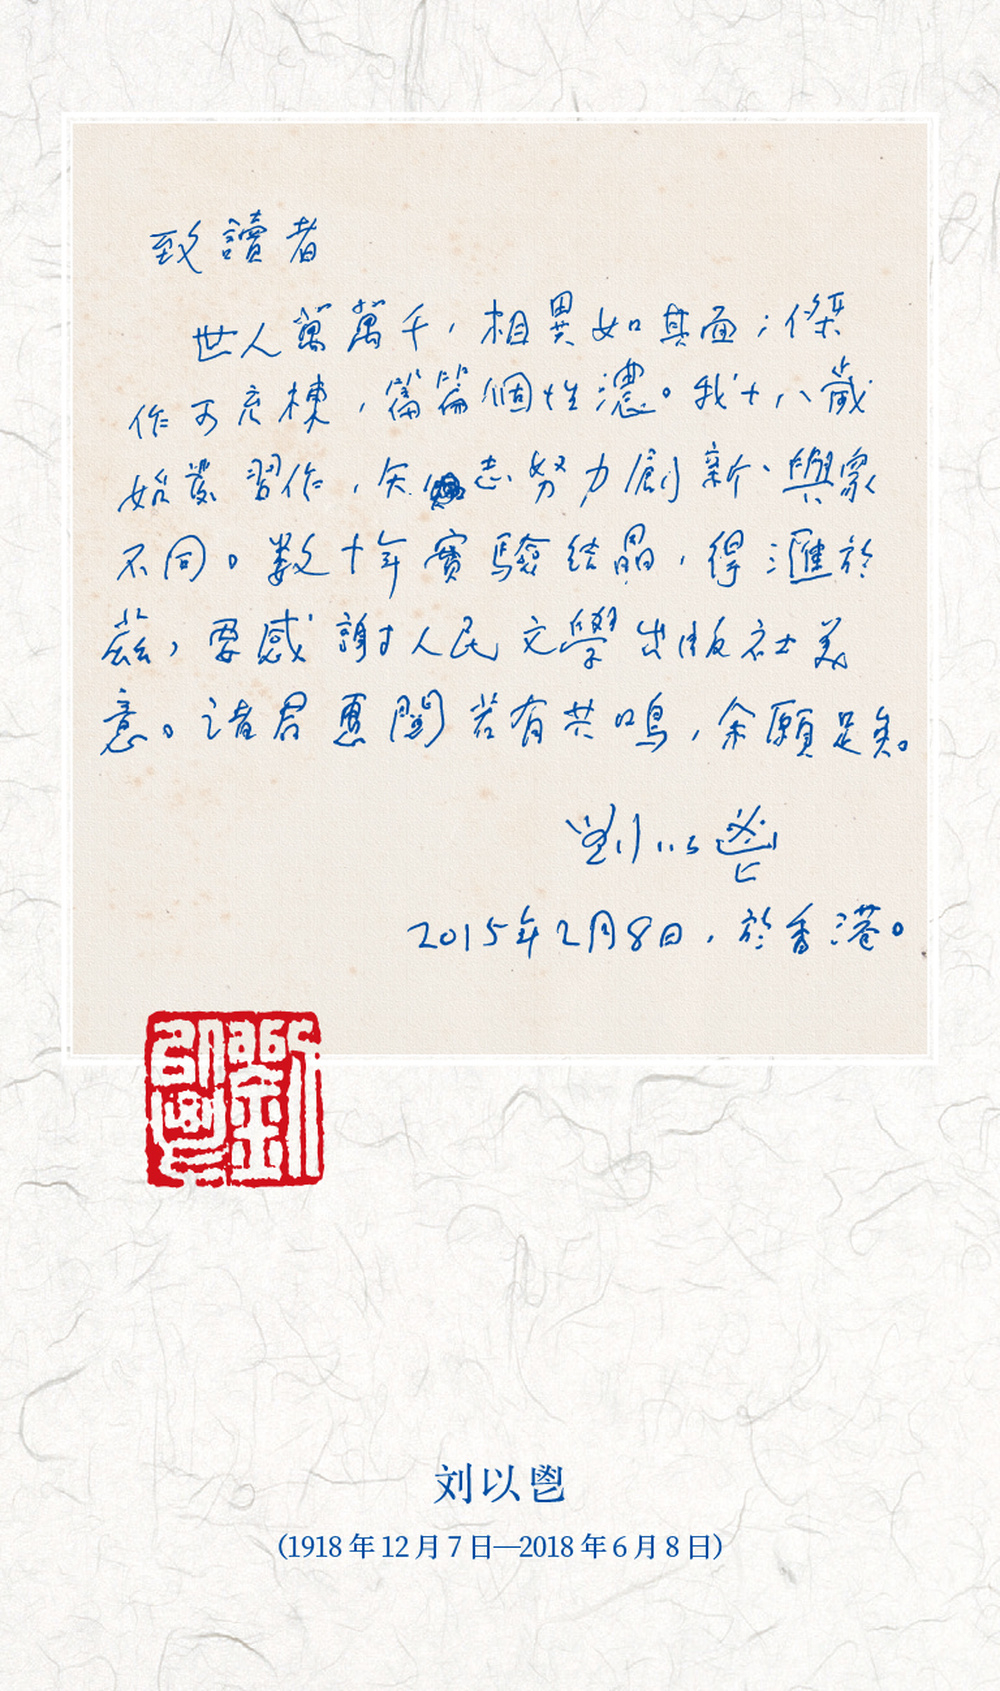 致讀者
世人萬萬千，相異如其面；傑
作可充棟，篇篇個性濃。我十八歲
始發習作，矢志努力創新、與眾
不同。数十年實驗結晶，得匯於
茲，要感謝人民文學出版社美
意。诸君惠閱若有共鳴，余願足矣。
劉以鬯
2015年2月8日，於香港。
劉以鬯
刘以鬯
(1918年12月7日—2018年6月8日)